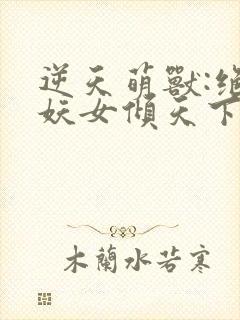 逆天萌獸:絕
妖女傾天下
木蘭水若寒